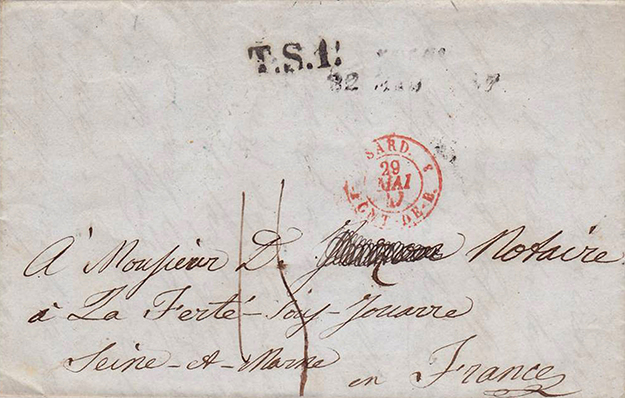 T.S.1.
22
SARD. 3
29
MAI
47
PONT-DE-B.
15
À Monsieur D. Notaire
à La Ferté-Sous-Jouarre
Seine-et-Marne
en France